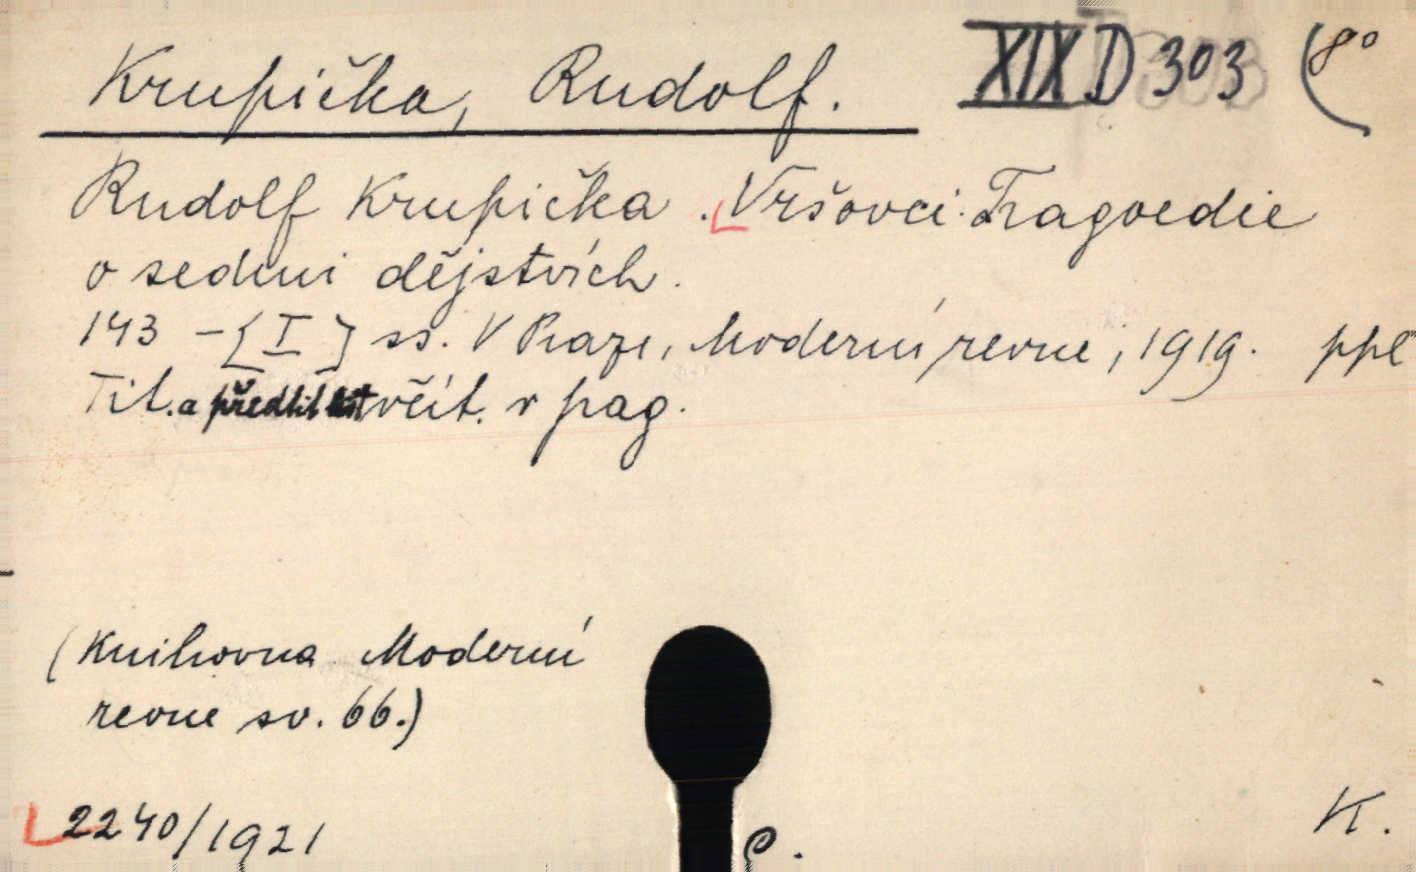 Krupička, Rudolf. XIX D 303 (8°
Rudolf Krupička. Vršovci. Tragoedie
o sedmi dějstvích.
143 - [I] ss. V Praze, Moderní revue, 1919. ppl
Tit. a předtit. list včít. v pag.
(Knihovna Moderní
revue sv. 66.)
2240/1921
C.
K.